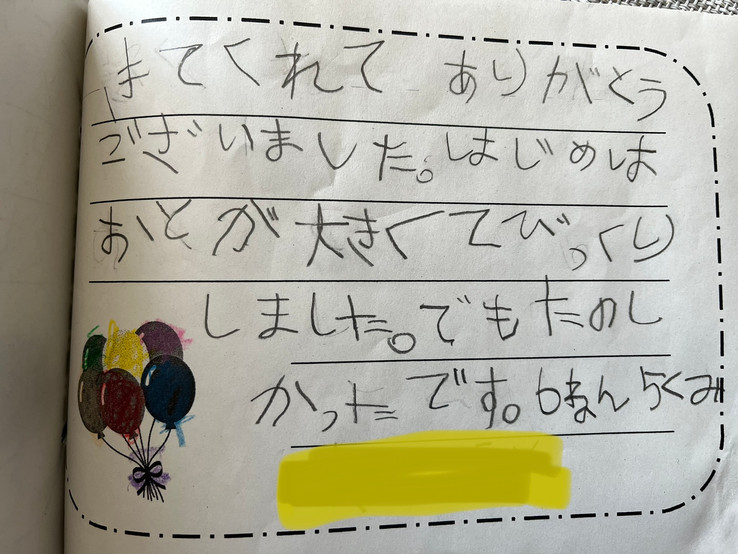 きてくれて ありがとう
ございました。はじめは
おとが大きくてびっくり
しました。でもたのし
かったです。6ねん5くみ